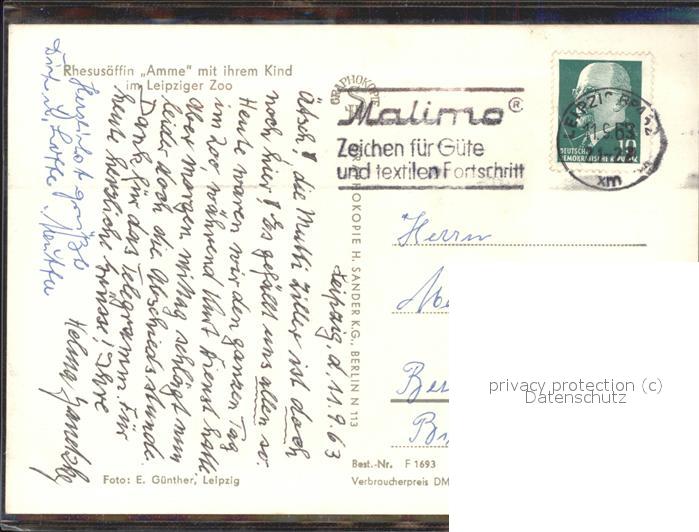 Rhesusäffin „Amme" mit ihrem Kind
im Leipziger Zoo
Malimo®
Zeichen für Güte
und textilen Fortschritt
LEIPZIG BPA 32
11.9.63
xm
10
DEUTSCHE
DEMOKRATISCHE REPUBLIK
GRAPHOKOPIE H. SANDER K.G., BERLIN N 113
Leipzig, d. 11.9.63
Ätsch! die Mutti Ziller ist doch
noch hier! Es gefällt uns allen so.
Heute waren wir den ganzen Tag
im Zoo während Kurt Dienst hatte.
Aber morgen mittag schlägt nun
leider doch die Abschiedsstunde.
Dank für das Telegramm. Für
heute herzliche Grüsse! Ihre
Helma
Herzlichst grüßt
Mutter
Herrn
privacy protection (c)
Datenschutz
Best.-Nr. F 1693
Verbraucherpreis DM
Foto: E. Günther, Leipzig